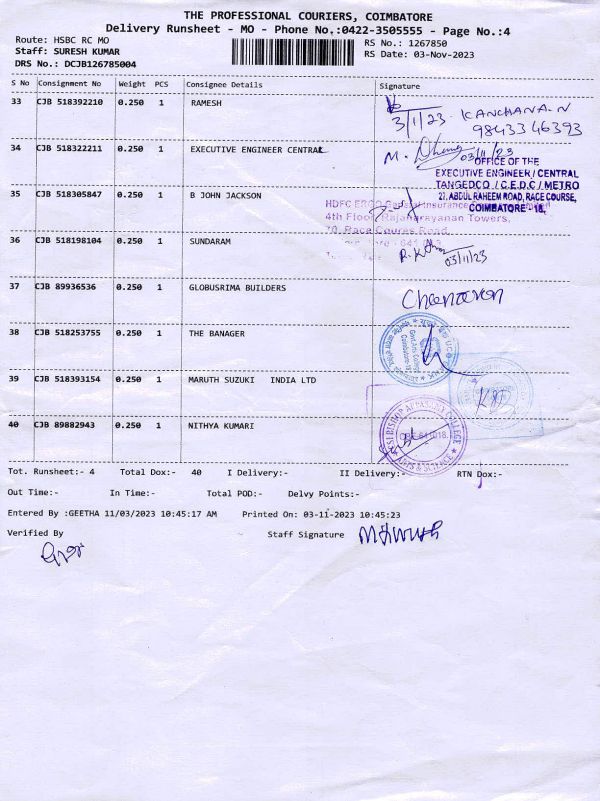 THE PROFESSIONAL COURIERS, COIMBATORE
Delivery Runsheet - MO - Phone No.:0422-3505555 - Page No.:4
Route: HSBC RC MO RS No.: 1267850
Staff: SURESH KUMAR RS Date: 03-Nov-2023
DRS No.: DCJB126785004
S No Consignment No Weight PCS Consignee Details Signature
33 CJB 518392210 0.250 1 RAMESH
3/11/23 KANCHANA.N
9843346393
34 CJB 518322211 0.250 1 EXECUTIVE ENGINEER CENTRAL
M. 03/11/23
OFFICE OF THE
EXECUTIVE ENGINEER/CENTRAL
TANGEDCO / C.E.D.C / METRO
27, ABDUL RAHEEM ROAD, RACE COURSE,
COIMBATORE - 18.
35 CJB 518305847 0.250 1 B JOHN JACKSON
HDFC ERGO General Insurance
4th Floor, Rajanarayanan Towers,
70, Race Coures Road
36 CJB 518198104 0.250 1 SUNDARAM
03/11/23
37 CJB 89936536 0.250 1 GLOBUSRIMA BUILDERS
38 CJB 518253755 0.250 1 THE BANAGER
39 CJB 518393154 0.250 1 MARUTH SUZUKI INDIA LTD
40 CJB 89882943 0.250 1 NITHYA KUMARI
CSI BISHOP APPASAMY COLLEGE
ARTS & SCIENCE
Tot. Runsheet:- 4 Total Dox:- 40 I Delivery:- II Delivery:- RTN Dox:-
Out Time:- In Time:- Total POD:- Delvy Points:-
Entered By :GEETHA 11/03/2023 10:45:17 AM Printed On: 03-11-2023 10:45:23
Verified By Staff Signature